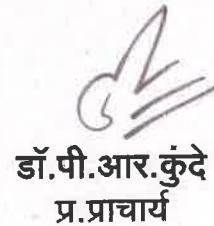 डॉ.पी.आर.कुंदे
प्र.प्राचार्य